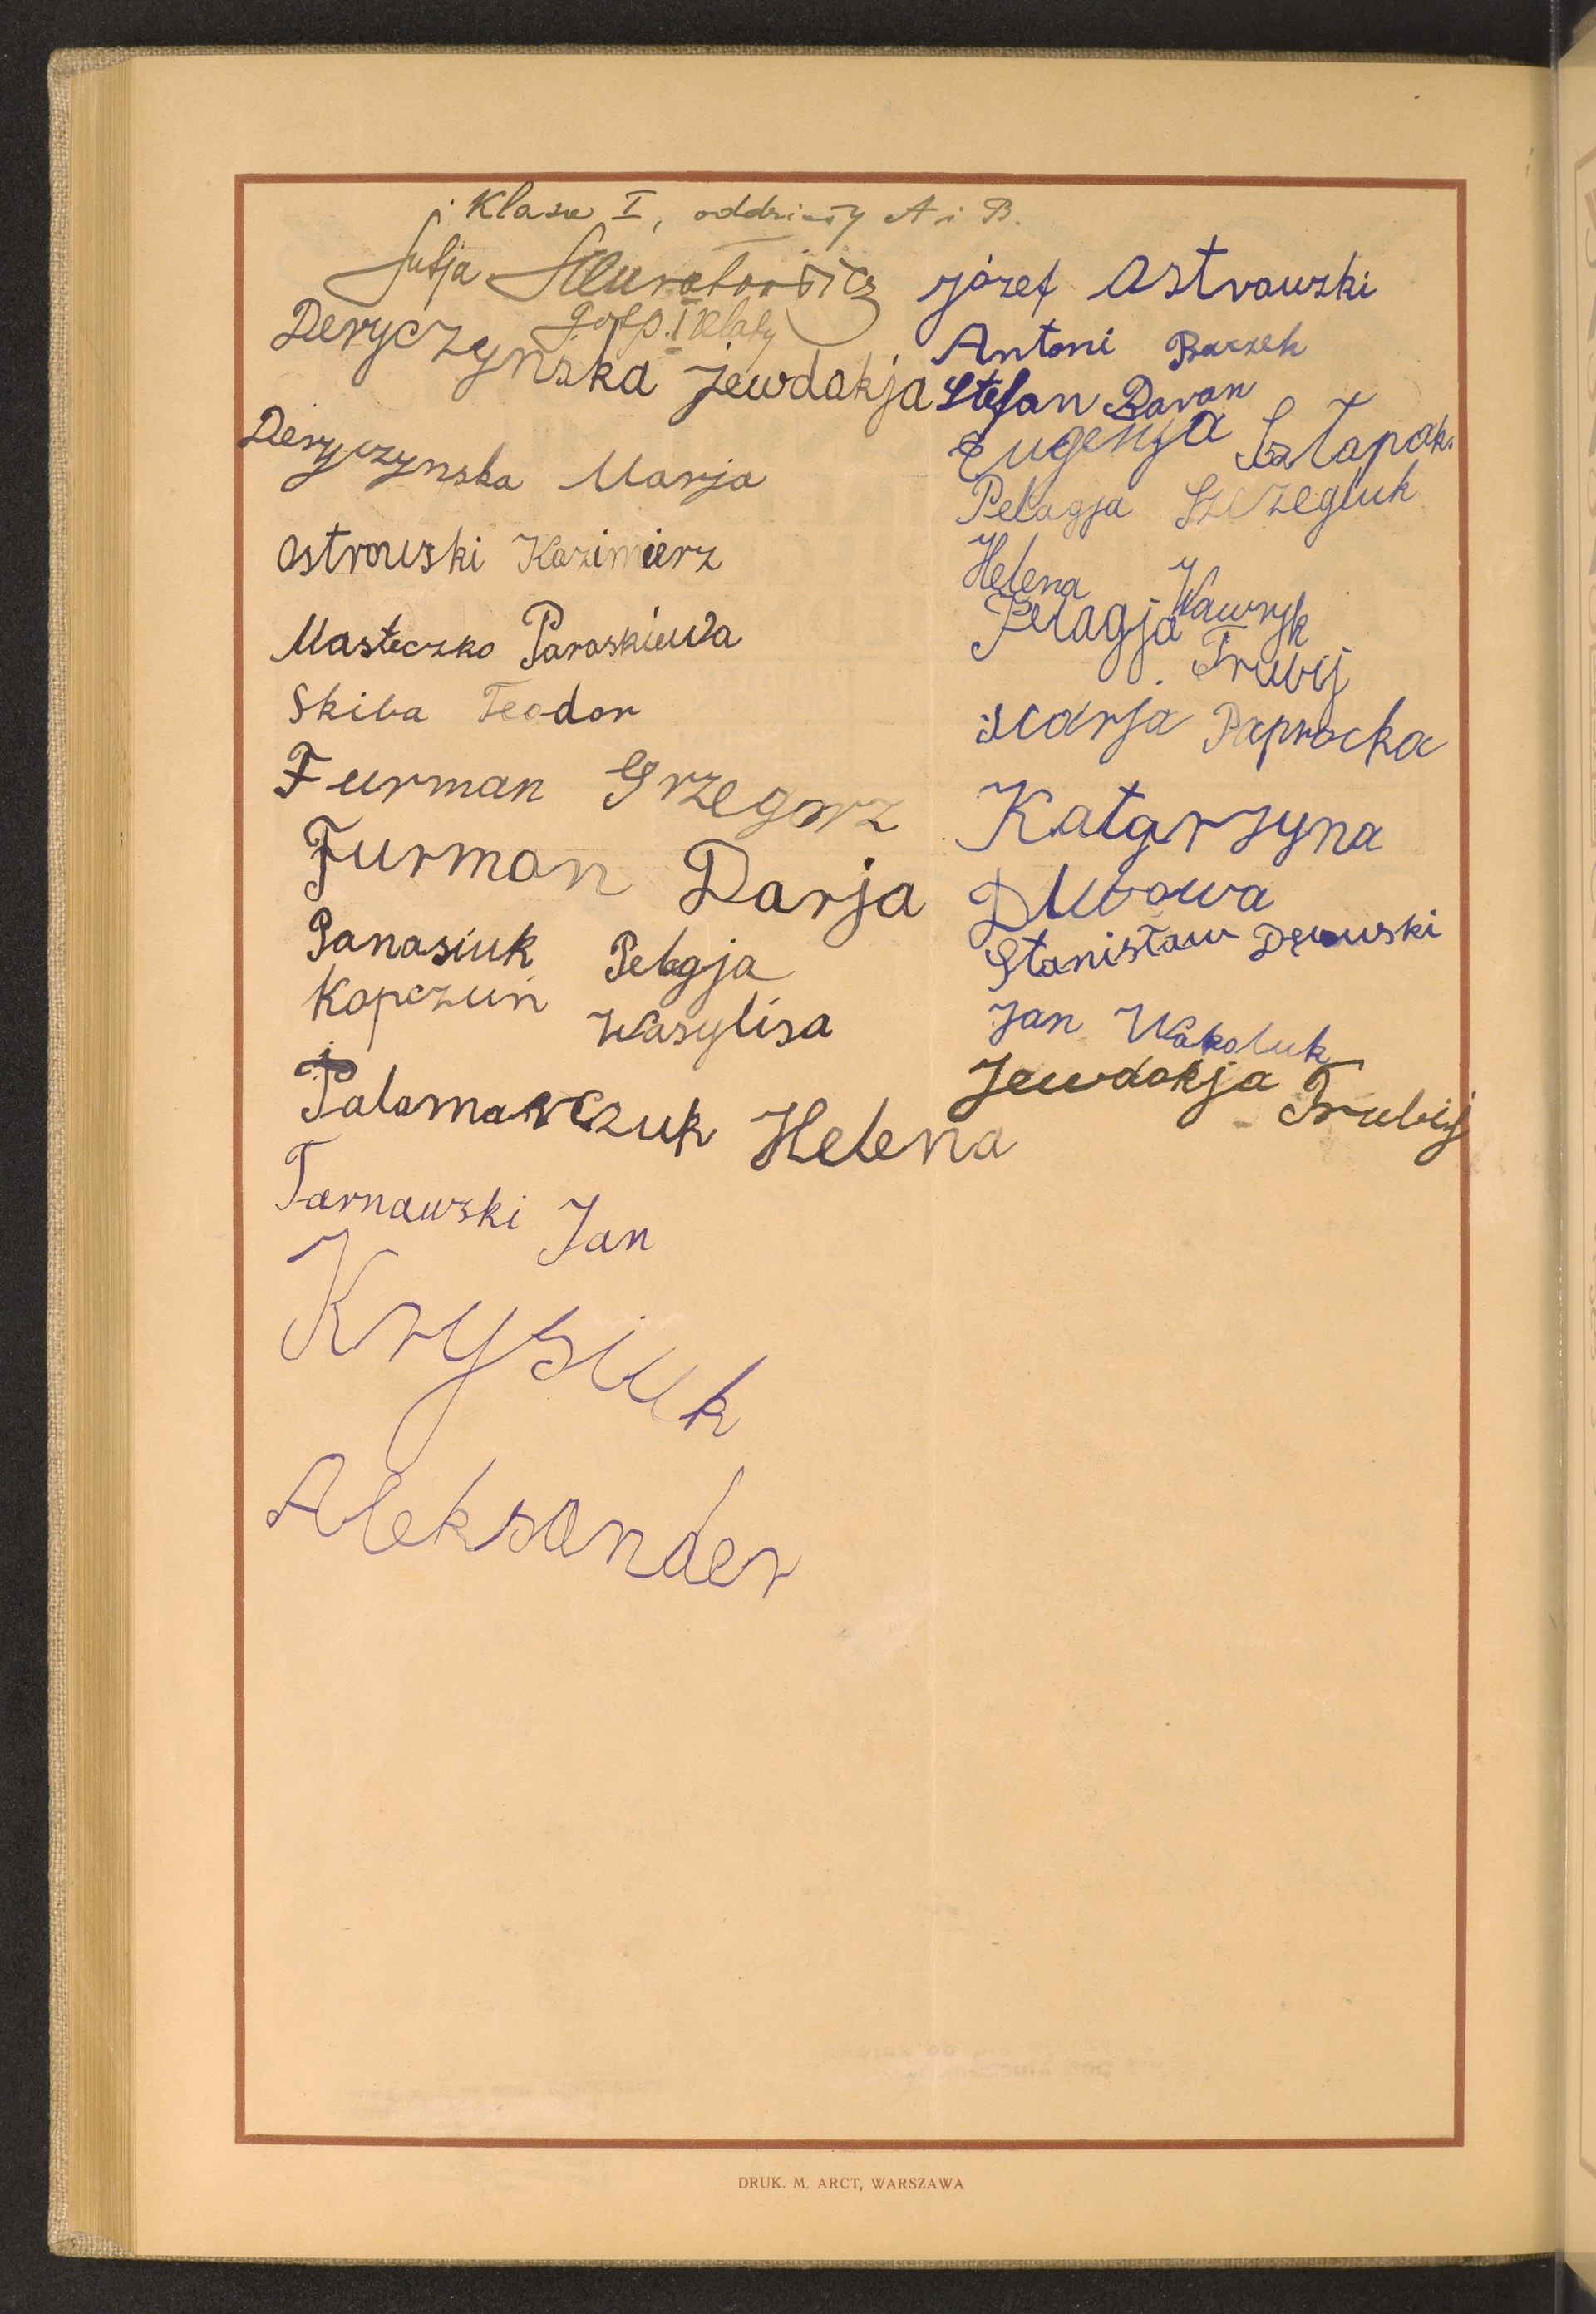 Klasa I, oddziały A i B.
gosp. I klasy
Deryczynska Jewdokja
Deryczynska Marja
Ostrowski Kazimierz
Masteczko Paraskiewa
Skiba Teodor
Furman Grzegorz
Furman Darja
Panasiuk Pelagja
Kopczuń Wasylisa
Palamarczuk Helena
Tarnawski Jan
Krysiuk
Aleksander
Józef Ostrowski
Antoni Barzek
Stefan Baran
Eugenja Szłapak.
Pelagja Szczegluk
Helena Wawryk
Pelagja Trubij
Marja Paprocka
Katarzyna
Dubowa
Stanisław
Jan Wakoluk
Jewdokja Trubij
DRUK. M. ARCT, WARSZAWA